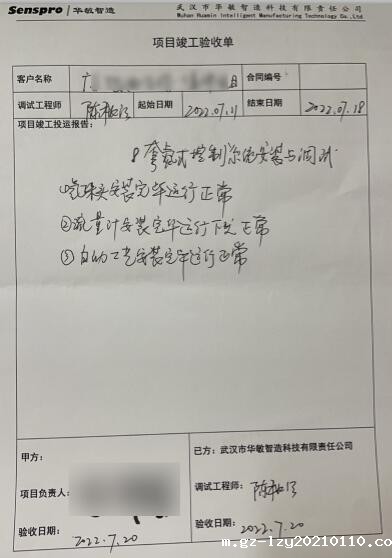 Senspro 华敏智造
武汉市华敏智造科技有限责任公司
Wuhan Huamin Intelligent Manufacturing Technology Co., Ltd.
项目竣工验收单
客户名称 广 日 合同编号
调试工程师 起始日期 2022.07.11 结束日期 2022.07.18
项目竣工投运报告:
8套 式控制系统安装与调试
安装完毕运行正常
②流量计安装完毕运行 正常
③自动工艺安装完毕运行正常
甲方:
已方:武汉市华敏智造科技有限责任公司
项目负责人:
调试工程师:
验收日期: 2022.7.20
验收日期: 2022.7.20
m.gz-lzy20210110.co